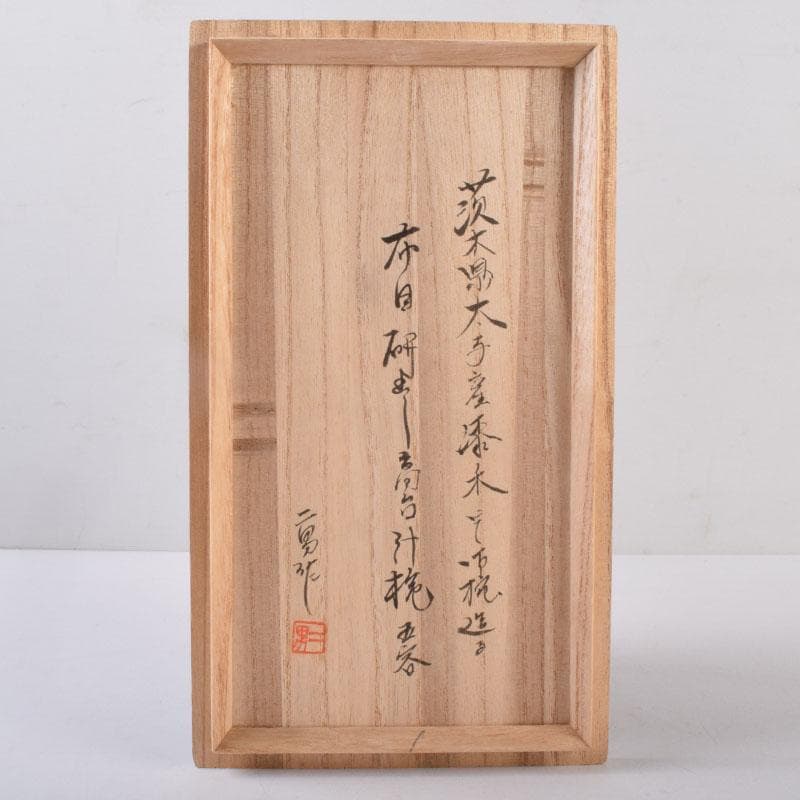 茨木県大子産漆木で汁椀造る
布目研出し高台汁椀 五客
二男作
二男